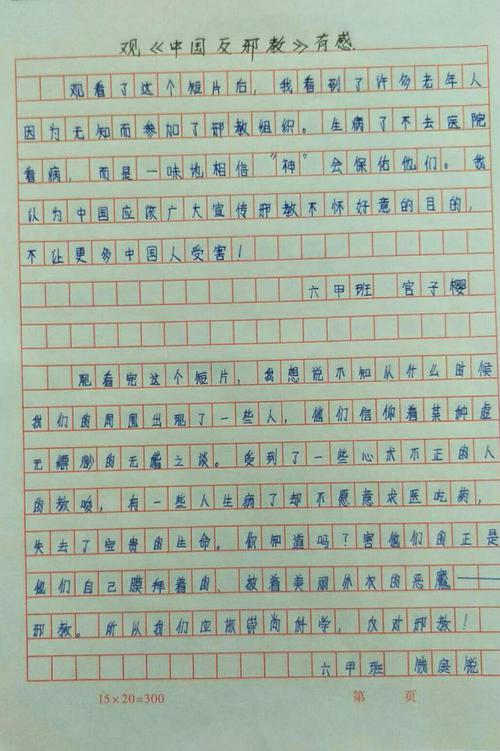 观《中国反邪教》有感
观看了这个短片后，我看到了许多老年人
因为无知而参加了邪教组织。生病了不去医院
看病，而是一味地相信“神”会保佑他们。我
认为中国应该广大宣传邪教不怀好意的目的，
不让更多中国人受害！
六甲班 官子樱
观看完这个短片，我想说不知从什么时候
我们的周围出现了一些人，他们信仰着某种虚
无缥缈的无稽之谈。受到了一些心术不正的人
的教唆，有一些人生病了却不愿意求医吃药，
失去了宝贵的生命。你知道吗？害他们的正是
他们自己膜拜着的、披着美丽外衣的恶魔——
邪教。所以我们应该崇尚科学，反对邪教！
六甲班 庭悦
15×20=300 第 页